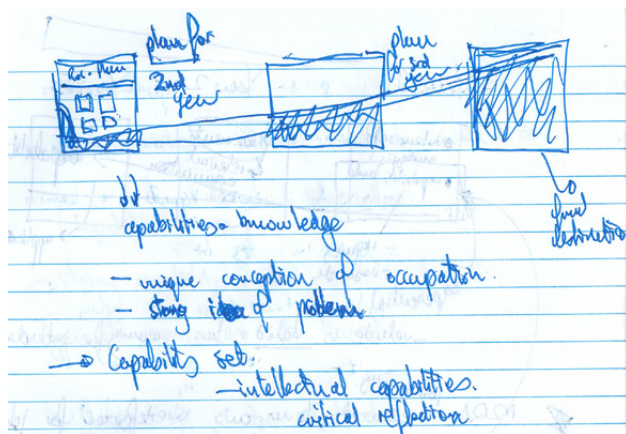 plan for
2nd
year
plan
for 3rd
year
final
destination
capabilities + knowledge
- unique conception of occupation.
- strong idea of
Capability set.
- intellectual capabilities.
critical reflection